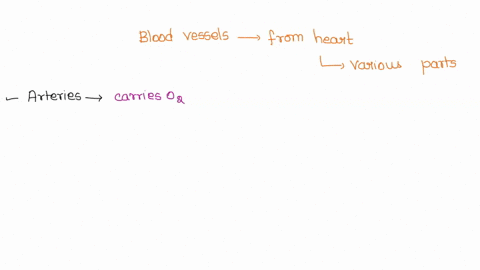 Blood vessels → from heart
↳ various parts
✓ Arteries → carries O₂